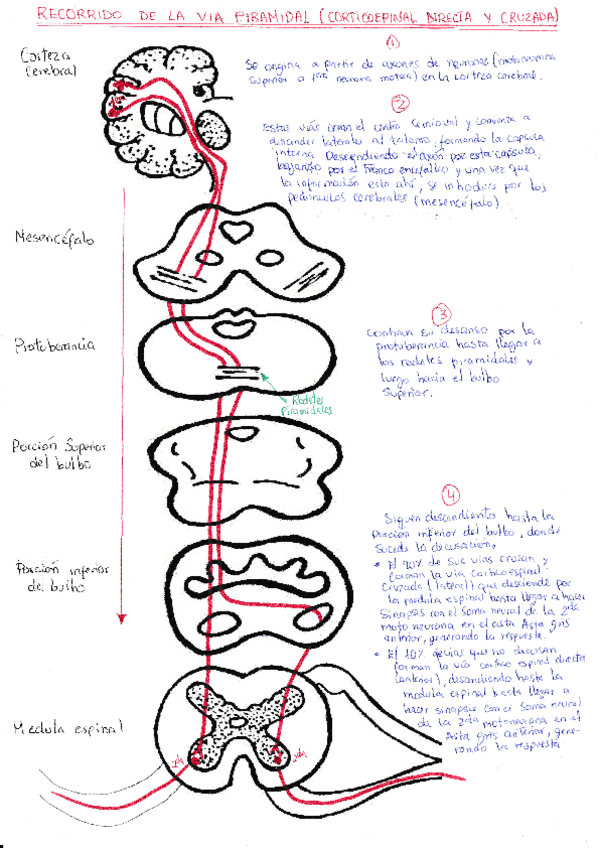 RECORRIDO DE LA VIA PIRAMIDAL (CORTICOEPINAL DIRECTA Y CRUZADA)
Corteza
Cerebral
1
Se origina a partir de axones de neuronas (motoneurona
Superior o 1era neurona motora) en la corteza cerebral.
2
Estas vías crean el centro Semioval y comienza a
descender laterales al talamo, formando la capsula
interna. Descendiendo el axón por esta capsula,
bajando por el tronco encefalico y una vez que
la información esta ahí, se introduce por los
pedunculos cerebrales (mesencéfalo)
Mesencéfalo
3
Continua su descenso por la
protuberancia hasta llegar a
los rodetes piramidales y
luego hacia el bulbo
Superior.
Protuberancia
Rodetes
Piramidales
Porción Superior
del bulbo
4
Siguen descendiento hasta la
Porción inferior del bulbo, donde
Sucede la decusación.
• El 90% de sus vías cruzan y
forman la vía cortico espinal
Cruzada (lateral) que desciende por
la medula espinal hasta llegar a hacer
Sinapsis con el Soma neural de la 2da
moto neurona en el asta Asta gris
anterior, generando la respuesta.
• El 10% de vias que no decusan
forman la vía cortico espinal directa
(anterior), descendiento hasta la
medula espinal hasta llegar a
hacer sinapsis con el Soma neural
de la 2da motoneurona en el
Asta gris anterior, gene-
rando la respuesta
Porción inferior
de bulbo
Medula espinal
2da
2da